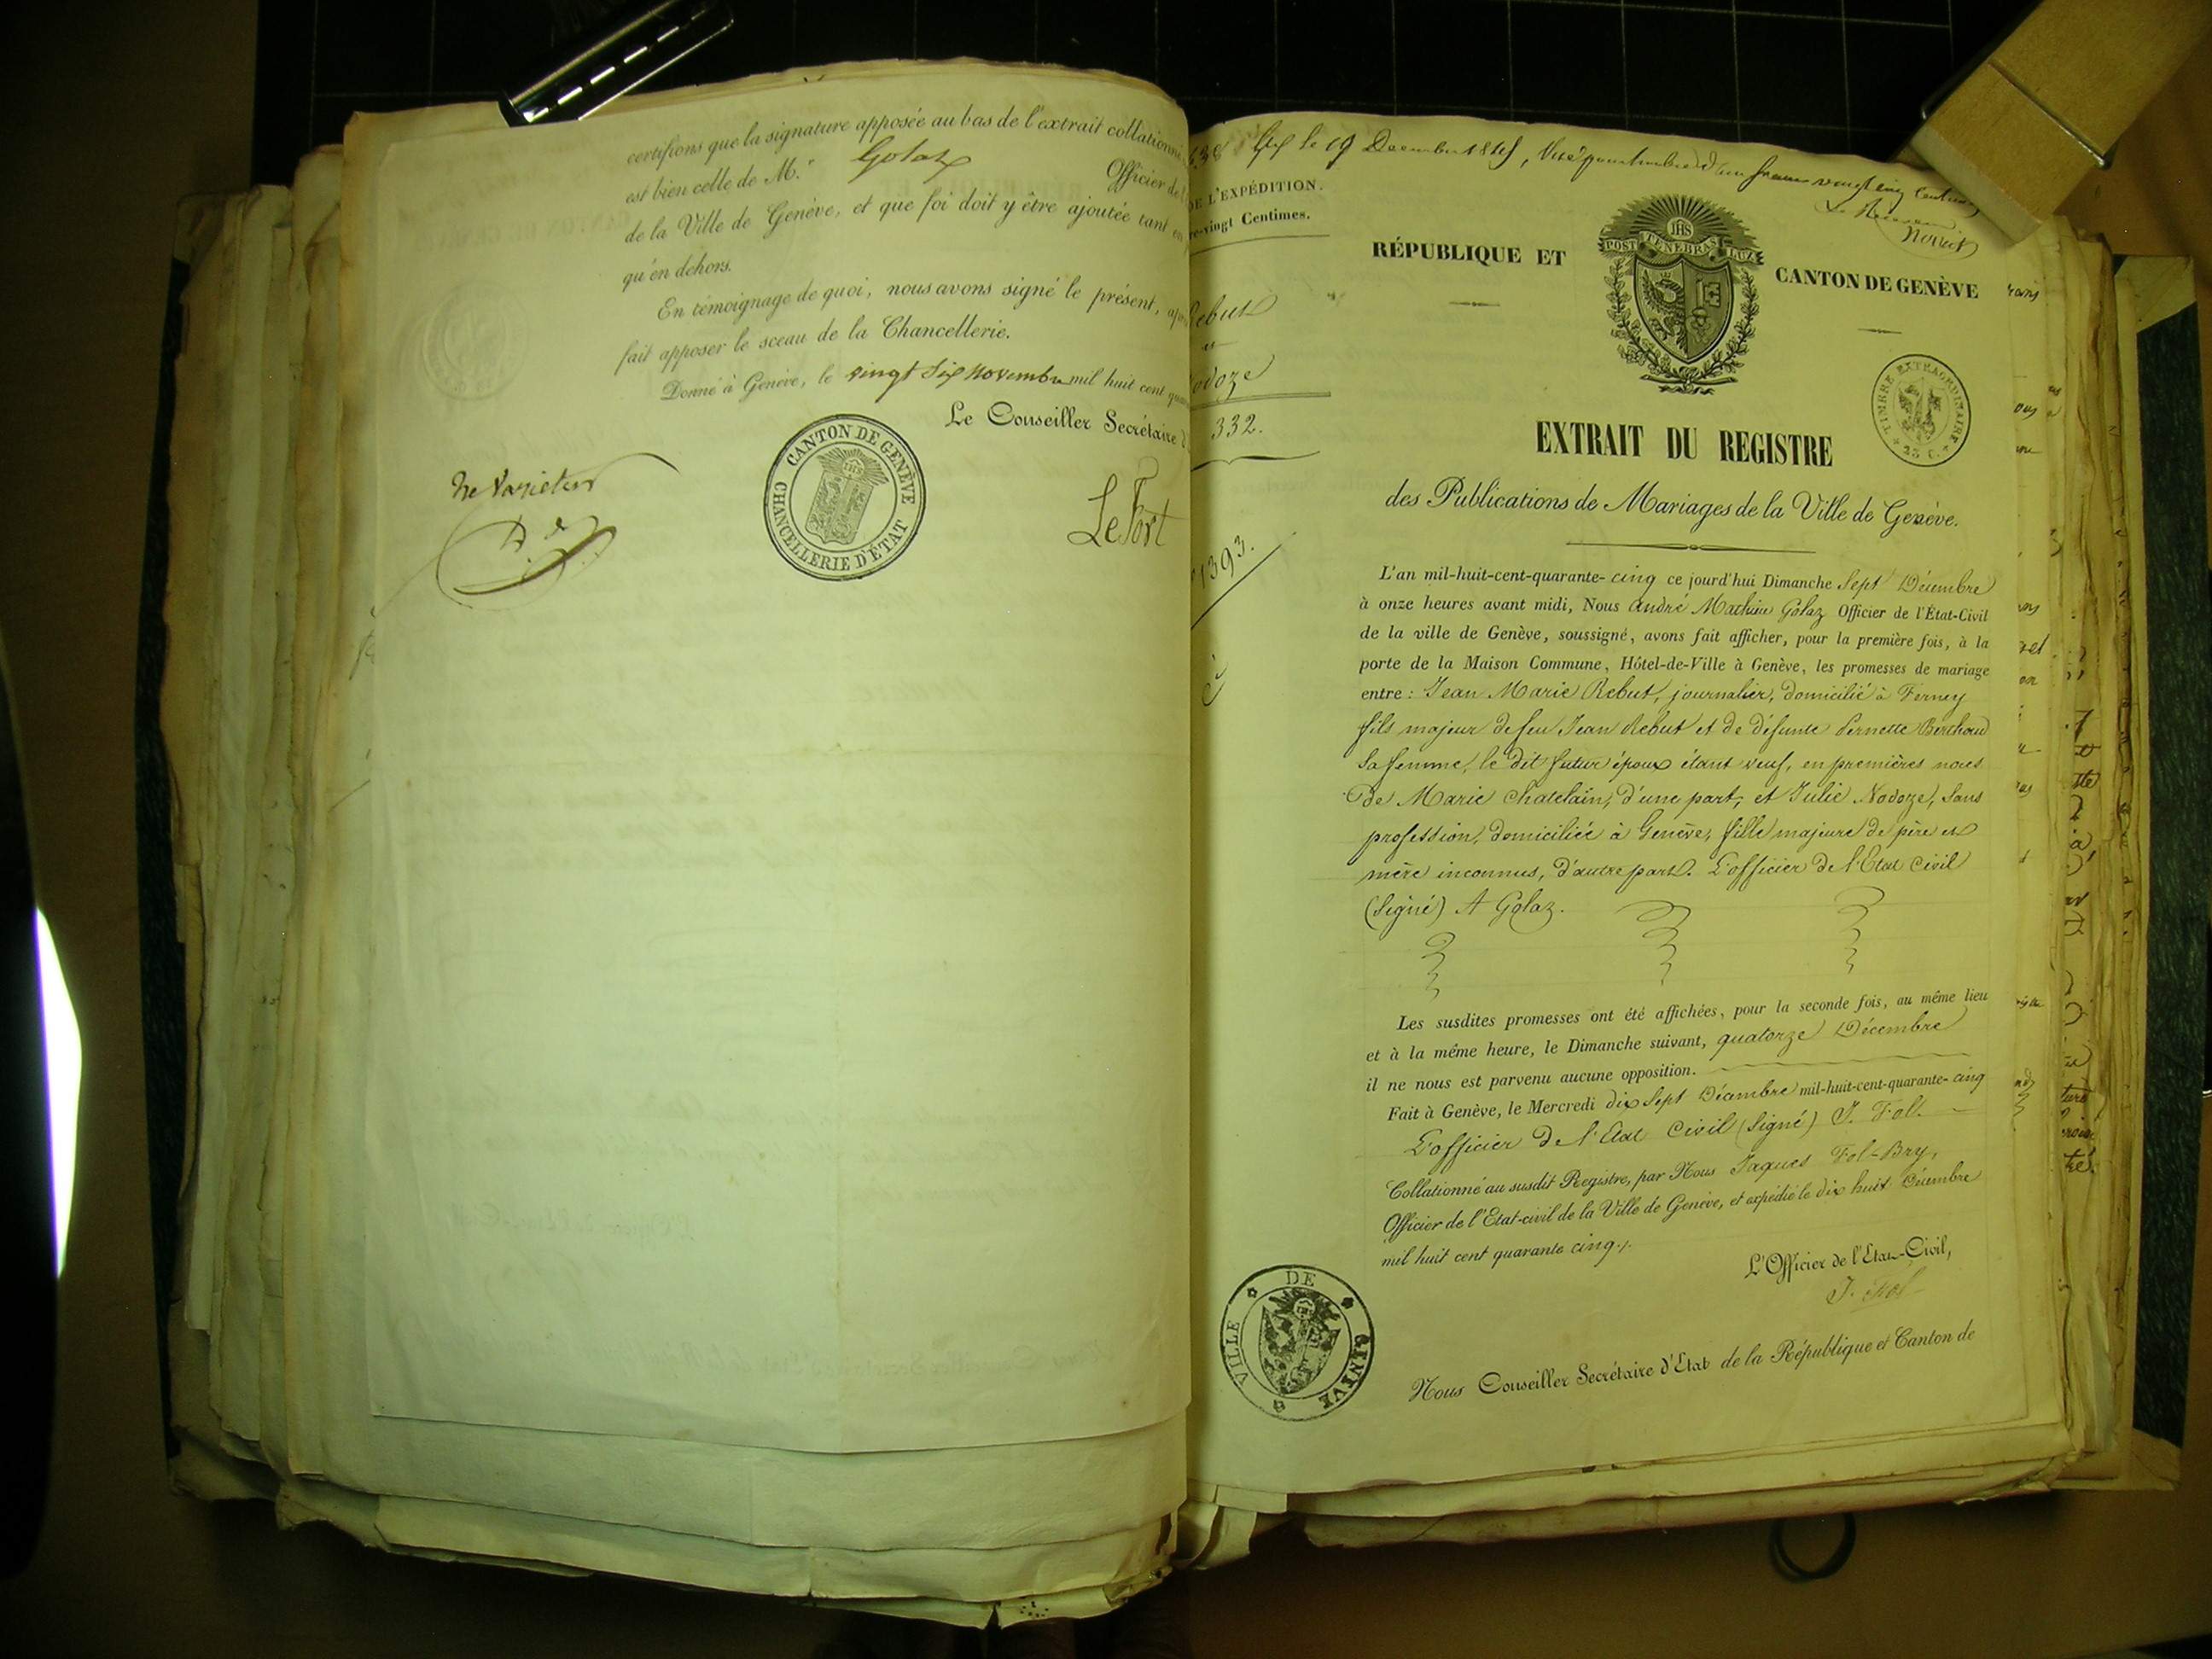 certifions que la signature apposée au bas de l'extrait collationné
est bien celle de M.r Golaz Officier de l'
de la Ville de Genève, et que foi doit y être ajoutée tant en
qu'en dehors.
En témoignage de quoi, nous avons signé le présent, après
fait apposer le sceau de la Chancellerie.
Donné à Genève, le vingt six novembre mil huit cent qua
Le Conseiller Secrétaire d'
CANTON DE GENÈVE
CHANCELLERIE D'ÉTAT
Le Fort
Ne Varietur
638 Gex le 19 Décembre 1845, Visé pour timbre d'un franc vingt cinq centimes
Le Receveur
DE L'EXPÉDITION.
re-vingt Centimes.
Rebut
et
Nodoze
332.
1393.
POST TENEBRAS LUX
IHS
RÉPUBLIQUE ET CANTON DE GENÈVE
TIMBRE EXTRAORDINAIRE
25 C.
EXTRAIT DU REGISTRE
des Publications de Mariages de la Ville de Genève.
L'an mil-huit-cent-quarante-cinq ce jourd'hui Dimanche Sept Décembre
à onze heures avant midi, Nous André Mathieu Golaz Officier de l'État-Civil
de la ville de Genève, soussigné, avons fait afficher, pour la première fois, à la
porte de la Maison Commune, Hôtel-de-Ville à Genève, les promesses de mariage
entre : Jean Marie Rebut, journalier, domicilié à Ferney
fils majeur de feu Jean Rebut et de défunte Pernette Berthoud
sa femme, le dit futur époux étant veuf, en premières noces
de Marie Chatelain, d'une part, et Julie Nodoze, sans
profession, domiciliée à Genève, fille majeure de père et
mère inconnus, d'autre part. L'officier de l'Etat Civil
(Signé) A Golaz.
Les susdites promesses ont été affichées, pour la seconde fois, au même lieu
et à la même heure, le Dimanche suivant, quatorze Décembre
il ne nous est parvenu aucune opposition.
Fait à Genève, le Mercredi dix Sept Décembre mil-huit-cent-quarante-cinq
L'officier de l'Etat Civil (Signé) J. Fol.
Collationné au susdit Registre, par Nous Jaques Fol-Bry,
Officier de l'Etat-civil de la Ville de Genève, et expédié le dix huit Décembre
mil huit cent quarante cinq./.
L'Officier de l'Etat-Civil,
J. Fol
VILLE DE GENÈVE
Nous Conseiller Secrétaire d'Etat de la République et Canton de